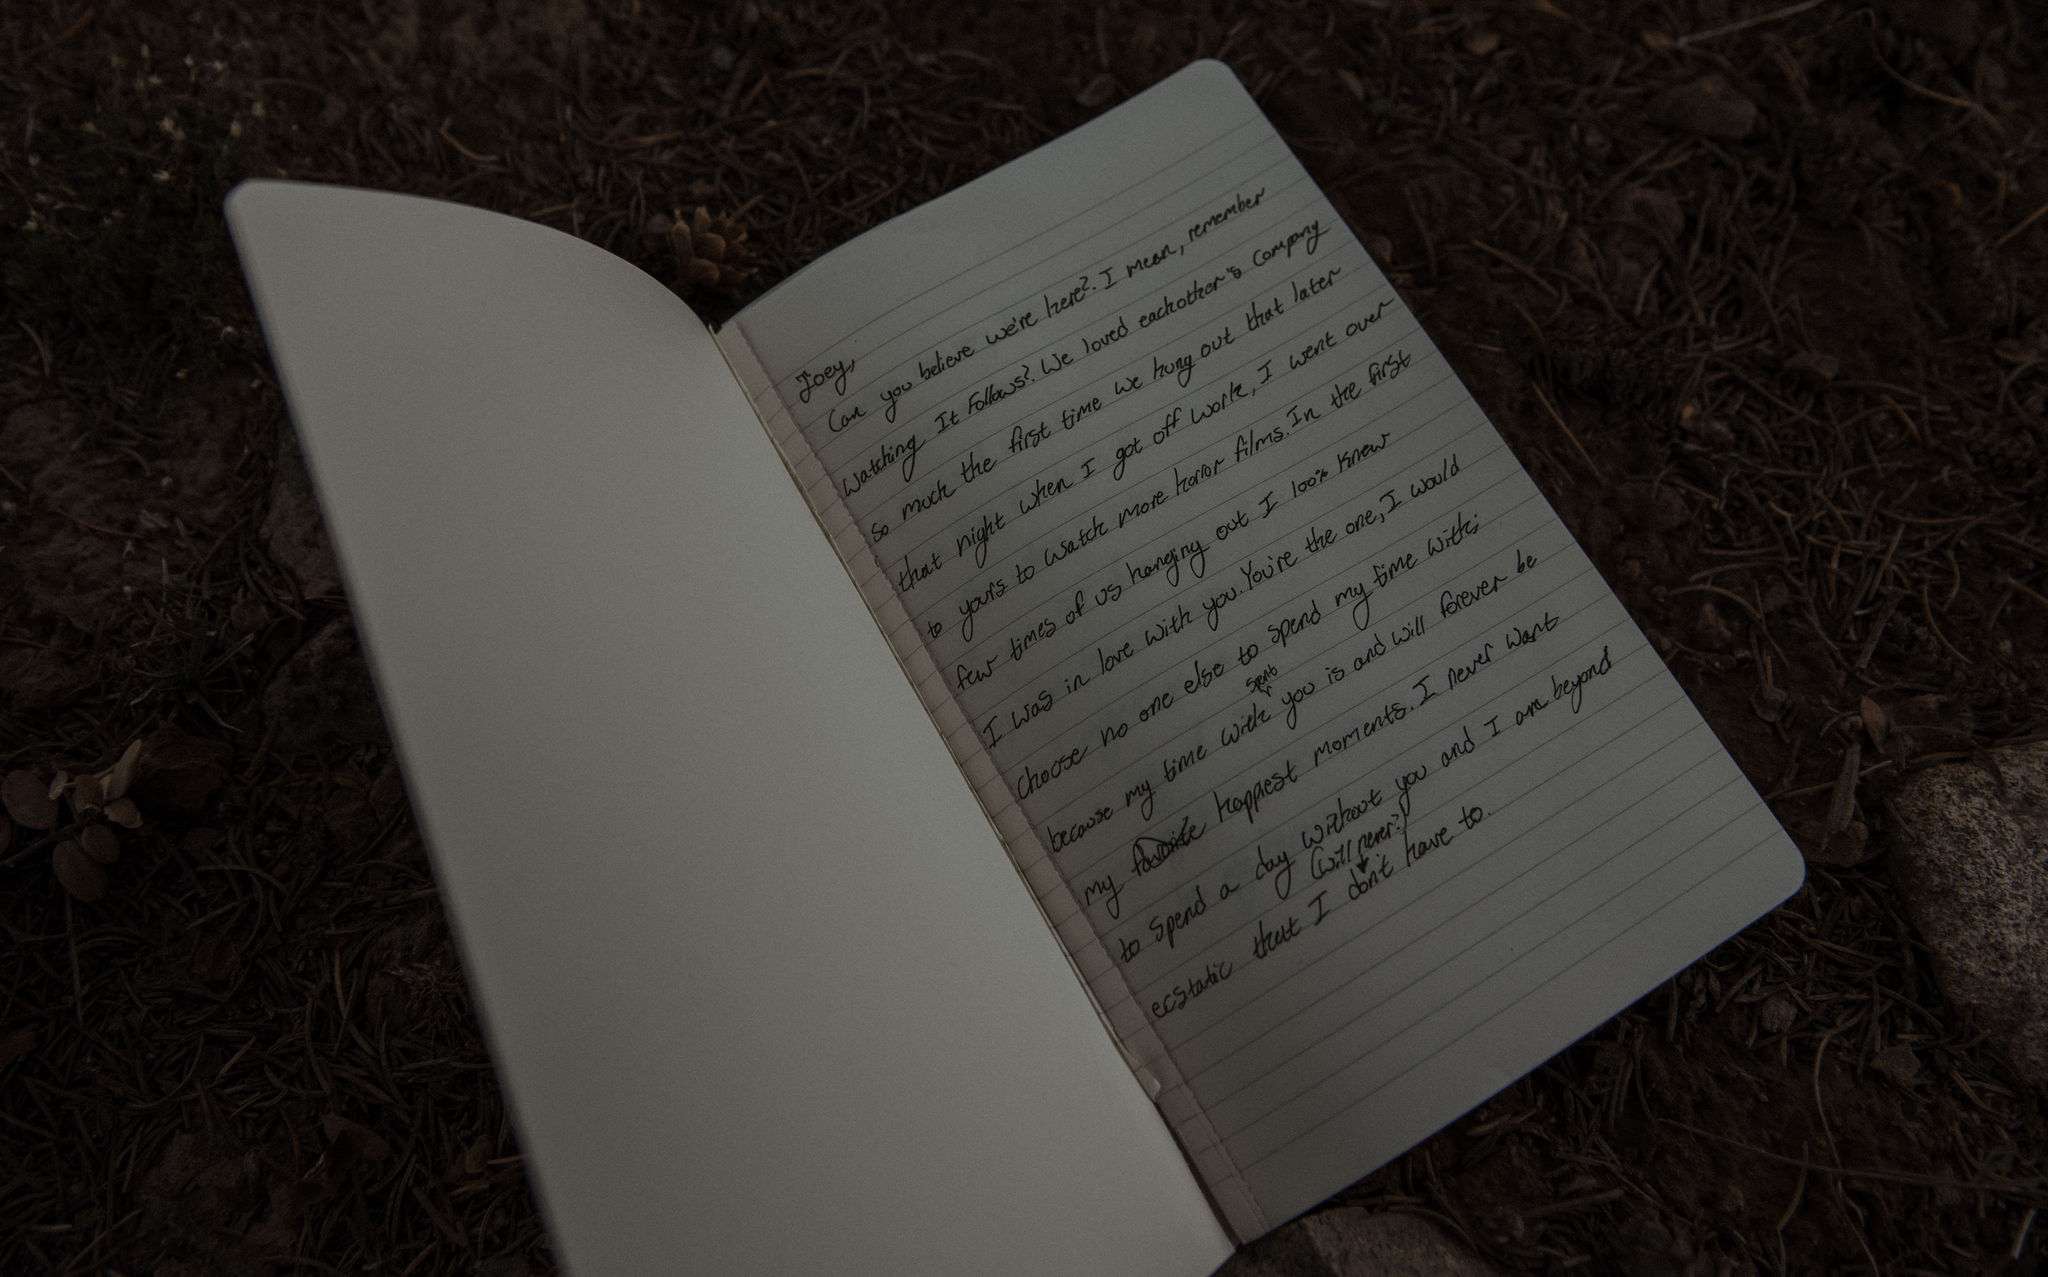 Joey,
Can you believe we're here?. I mean, remember
watching It Follows?. We loved eachother's company
so much the first time we hung out that later
that night when I got off work, I went over
to yours to watch more horror films. In the first
few times of us hanging out I 100% knew
I was in love with you. You're the one, I would
choose no one else to spend my time with;
because my time with spent you is and will forever be
my favorite happiest moments. I never want
to spend a day without you and I am beyond
(will never?)
ecstatic that I don't have to.